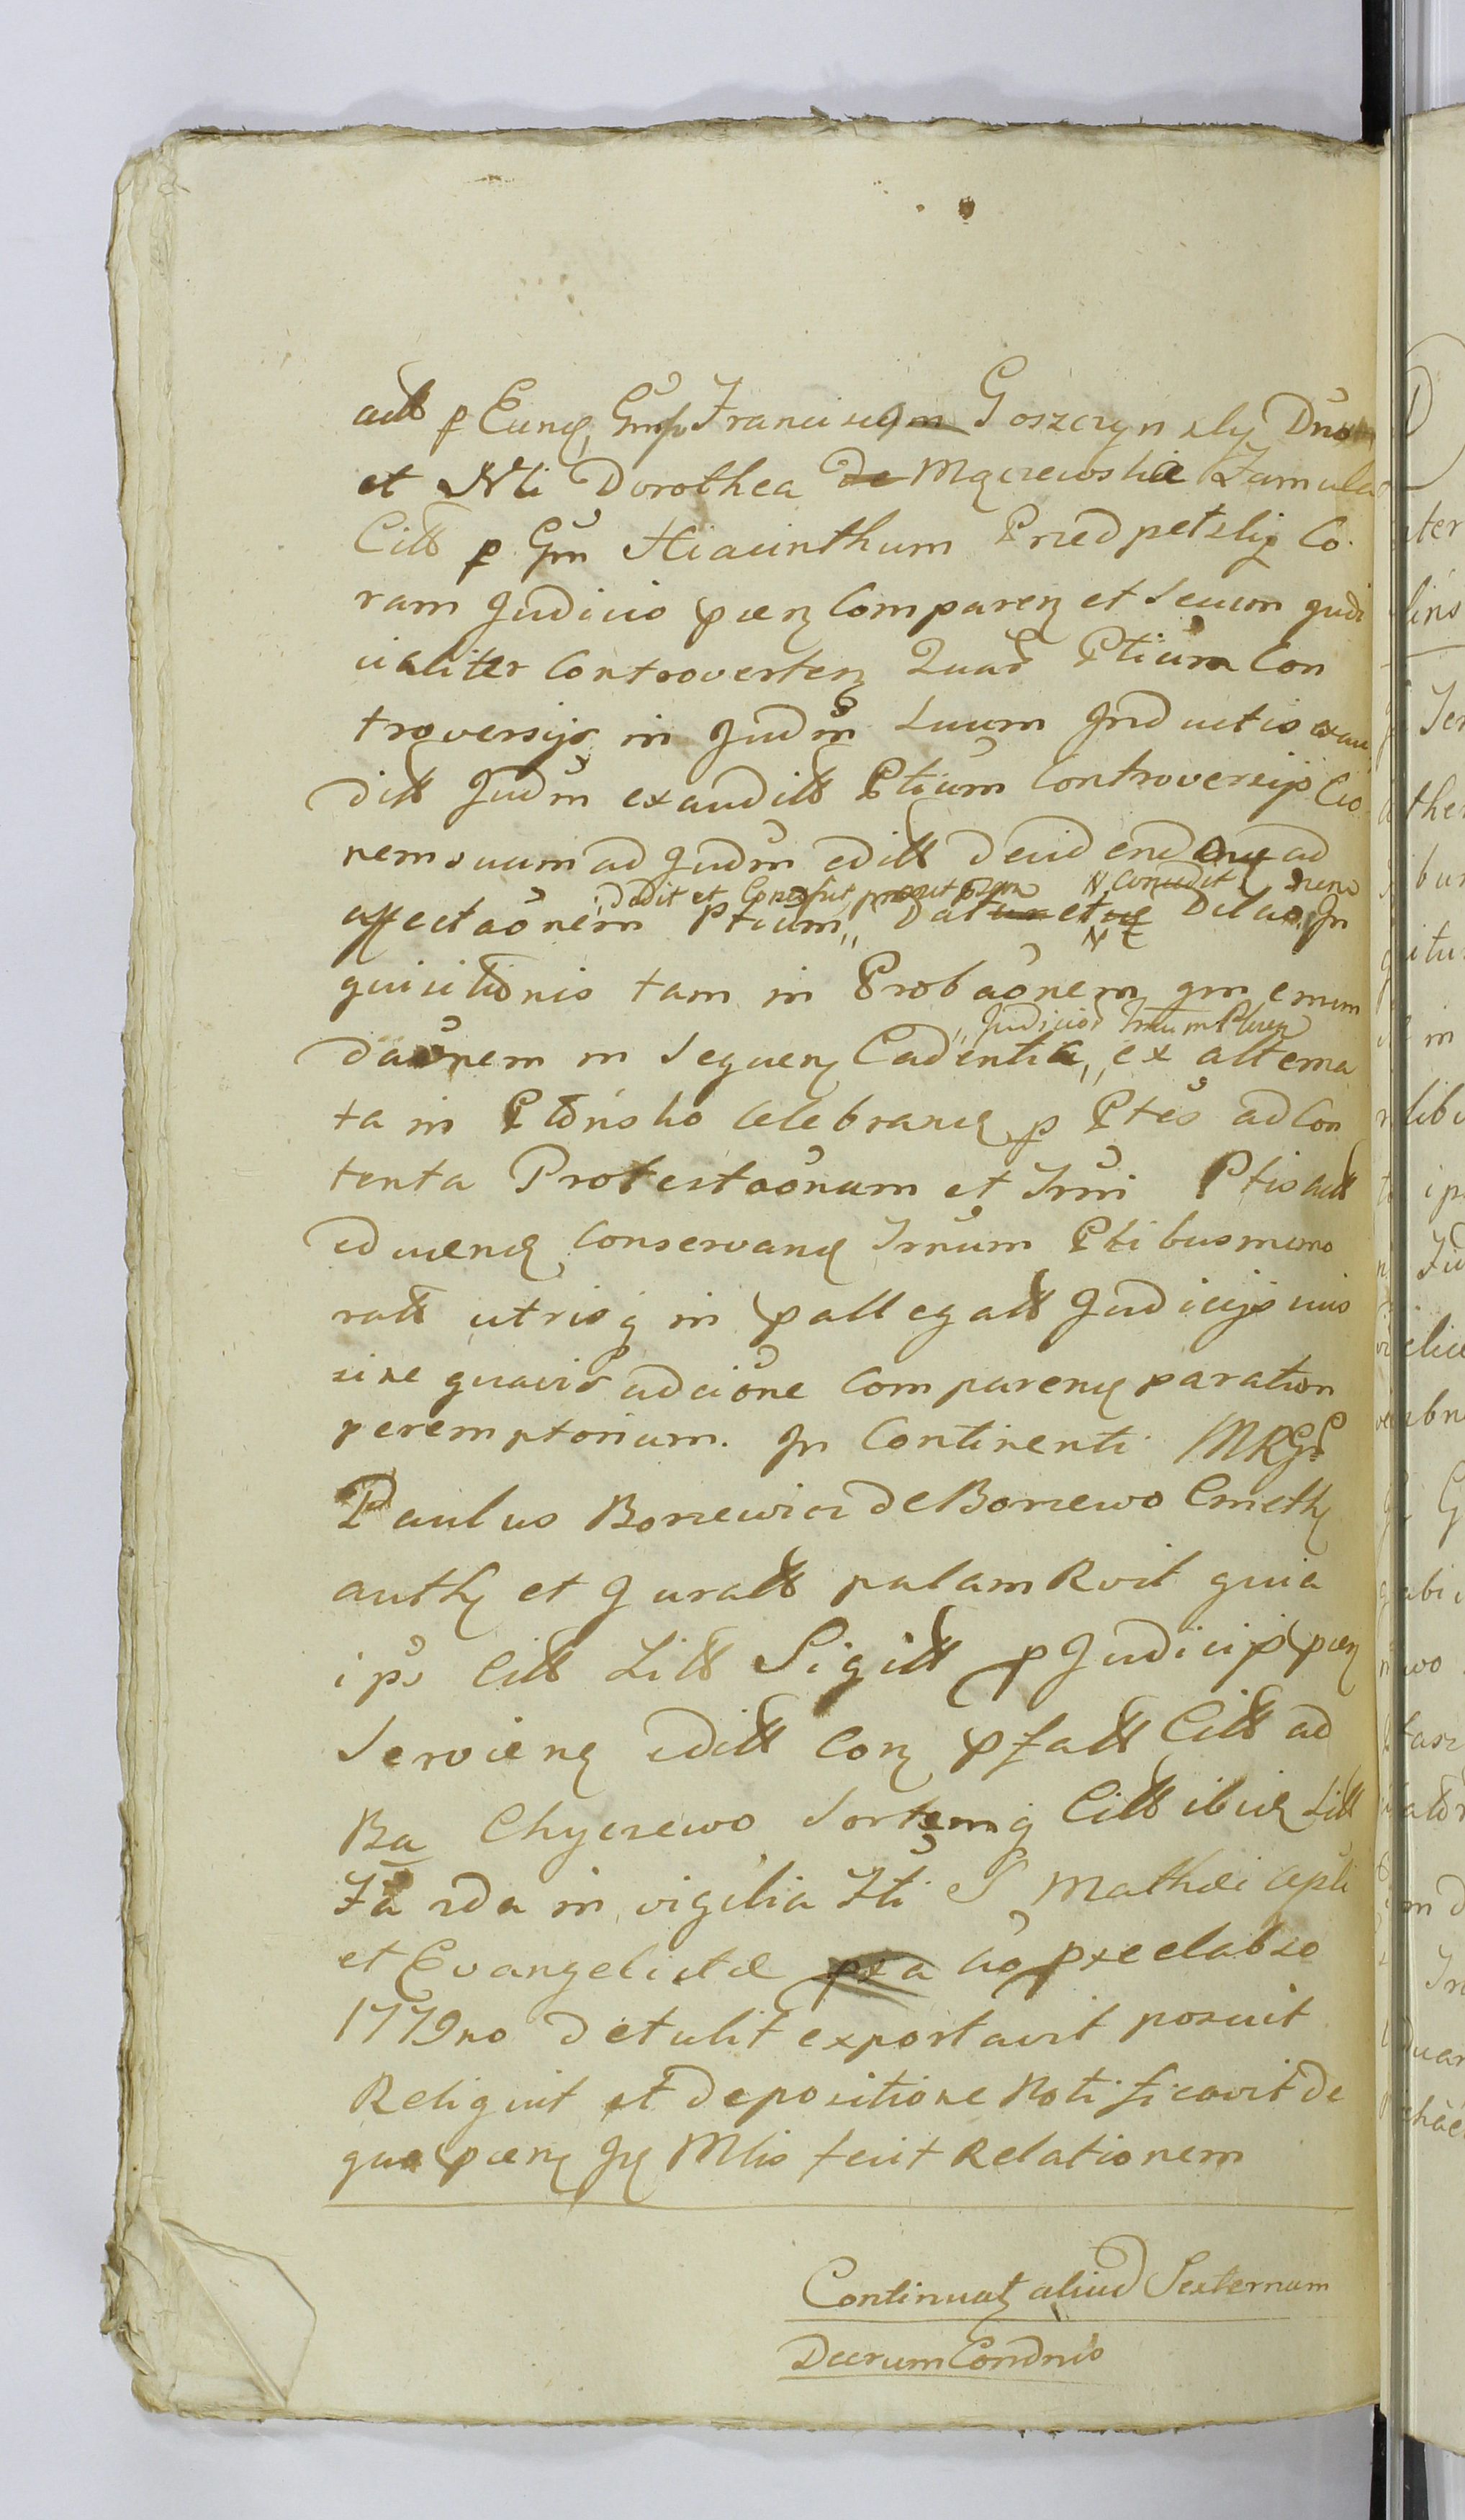 actt p Eund Franciscum Goszczynsky Dno
et Nli Dorothea de Mączewskie Famula
Citt p Gm Hiacinthum Przedpełsky Co-
ram Judicio pñ Comparen et Secum Judi
cialiter Controverten Quar Ptium Con
troversijs in Judm Suum Inductis exau
ditt Judm exauditt Ptium Controversijs Cio
nem suum ad Judm editt decidend ad
Dedit et Concessit
affectaonem Ptium Dila In
quisitionis tam in Probaonem qm emun
Judicior Trm Ploren
daonem in Sequen Cadentia ex alterna
ta in Płońsko Celebrand p Ptes ad Con
tenta Protestaonum et Trmi Ptis actt
educend Conservand Trnum Ptibus memo
ratt utrisq in pallegatt Judicijs
sine quavis adcione Comparend paration
peremptorium. In Continenti MRGl
Paulus Borzewicz de Borzewo Cmeth
auth et Juratt palam Rvit quia
ips Citt Litt Sigitt p Judicijs pñ
Servien editt Con pfatt Citt ad
Ba Chyczewo Sortemq Citt ibid Litt
Fa 2da in vigilia Fti S Mathei Apli
et Evangelistæ pxa ao pxe elabso
1779no detulit exportavit posuit
Reliquit et depositione Notificavit de
quo pñ Mlis fecit Relationem
Continuat aliud Sexternum
Decrum Condnis